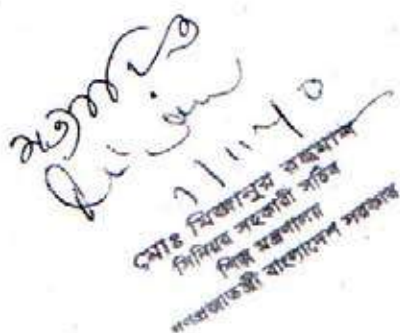 সত্যায়িত
মোঃ মিজানুর রহমান
সিনিয়র সহকারী সচিব
শিল্প মন্ত্রণালয়
গণপ্রজাতন্ত্রী বাংলাদেশ সরকার